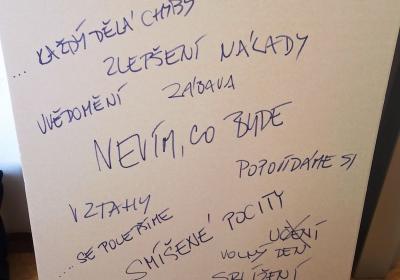 ... KAŽDÝ DĚLÁ CHYBY
ZLEPŠENÍ NÁLADY
UVĚDOMĚNÍ
ZÁBAVA
NEVÍM, CO BUDE
POPOVÍDÁME SI
VZTAHY
... SE POLEPŠÍME
SMÍŠENÉ POCITY
UČENÍ
VOLNÝ DEN
SBLÍŽENÍ